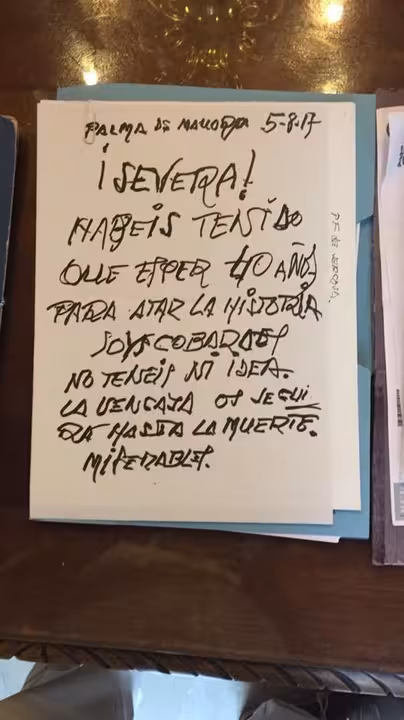 PALMA DE MALLORCA 5-8-17
¡SEVERA!
HABEIS TENIDO
QUE ESPER 40 AÑOS
PARA ATAR LA HISTORIA
SOYS COBARDES
NO TENEIS NI IDEA.
LA VENGAZA OS SEGUI
RA HASTA LA MUERTE.
MISERABLES.